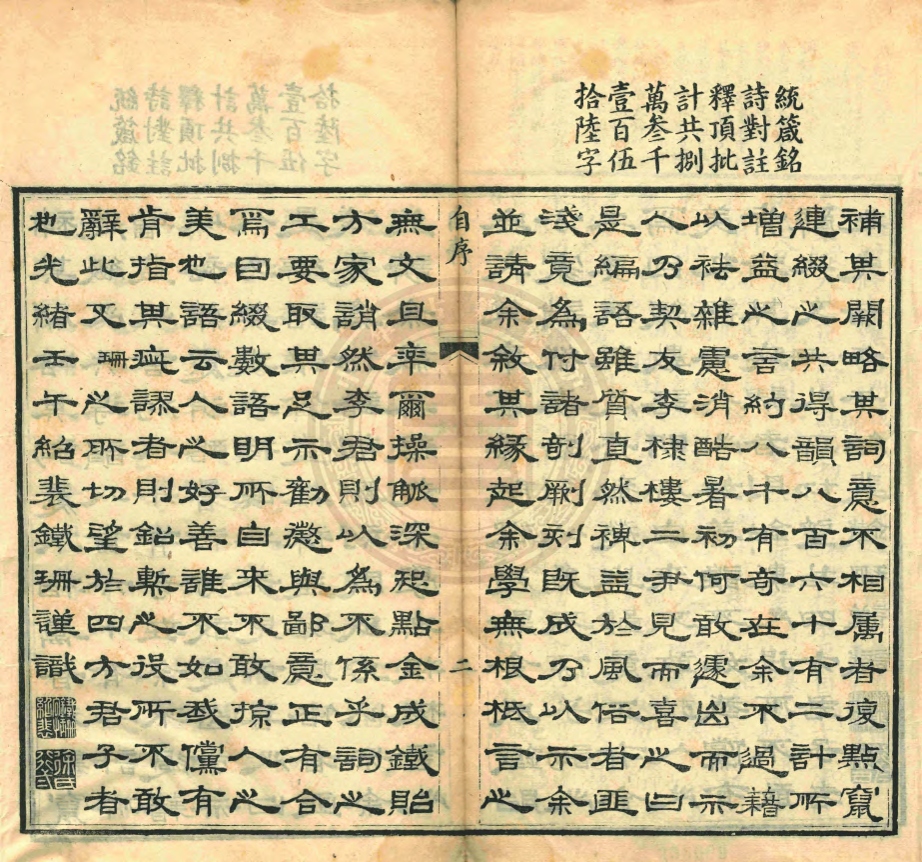 統箴銘
詩對註
釋頂批
計共捌
萬叄千
壹百伍
拾陸字
補其闕略其詞意不相屬者復點竄
連綴之共得韻八百六十有二計所
增益之言約八千有奇在余不過藉
以祛雜慮消酷暑初何敢遽出而示
人乃契友李棣樓二尹見而喜之曰
是編語雖質直然裨益於風俗者匪
淺竟為付諸剞劂刻既成乃以示余
並請余敘其緣起余學無根柢言之
自序
二
無文且率爾操觚深恐點金成鐵貽
方家誚然李君則以為不係乎詞之
工要取其足示勸懲與鄙意正有合
焉因綴數語明所自來不敢掠人之
美也語云人之好善誰不如我儻有
肯指其疵謬者則鉛槧之役所不敢
辭此又珊之所切望於四方君子者
也光緒壬午紹裴鐵珊謹識